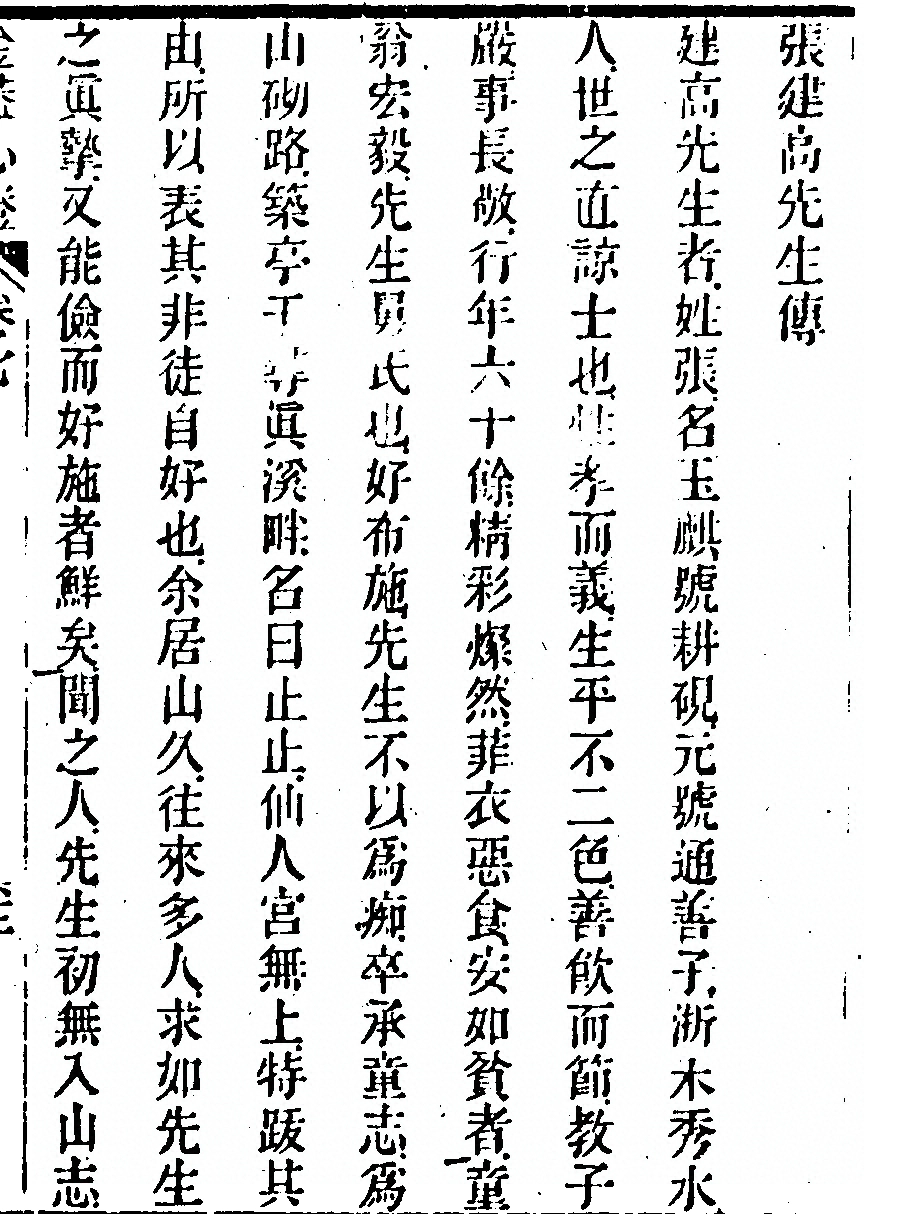 張建高先生傳
建高先生者姓張名玉麒號耕硯元號通善子浙木秀水
人世之直諒士也性孝而義生平不二色善飲而節教子
嚴事長敬行年六十餘精彩燦然菲衣惡食安如貧者童
翁宏毅先生舅氏也好布施先生不以爲痴卒承童志爲
山砌路築亭于 眞溪畔名曰止止仙人宮無上特跋其
由所以表其非徒自好也余居山久往來多人求如先生
之眞摯又能儉而好施者鮮矣聞之人先生初無入山志